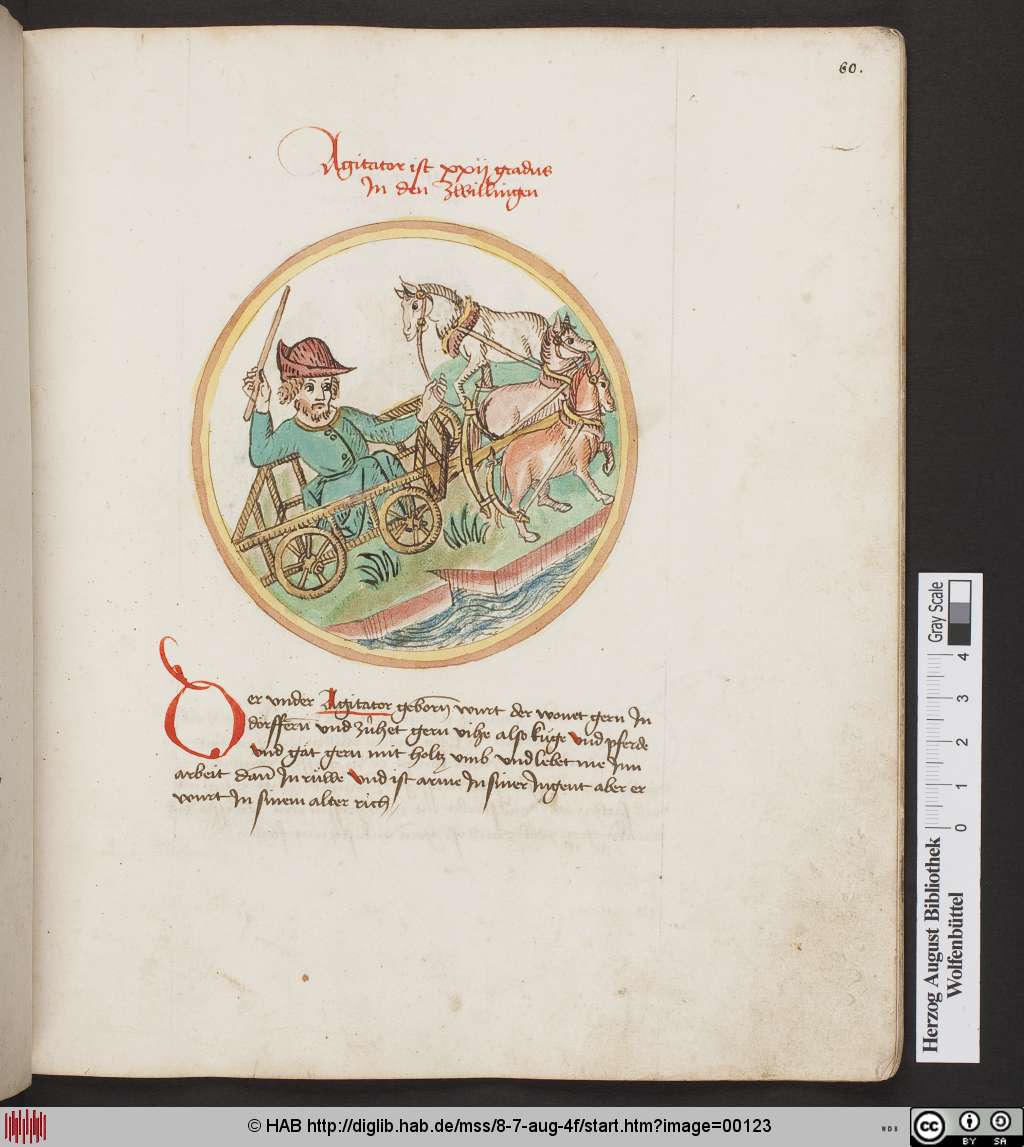 60.
Agitator ist xxij gradus
In den Zwillingen
Der vnder Agitator geborn wurt der wonet gern In
dörffern vnd zühet gern vihe also küge vnd pferde
vnd gat gern mit holtz vmb vnd lebet me Inn
arbeit dan In rüwe vnd ist arme In siner Jugent aber er
wurt In sinem alter rich
Gray Scale
0 1 2 3 4
Herzog August Bibliothek
Wolfenbüttel
© HAB http://diglib.hab.de/mss/8-7-aug-4f/start.htm?image=00123
WDB
cc BY SA